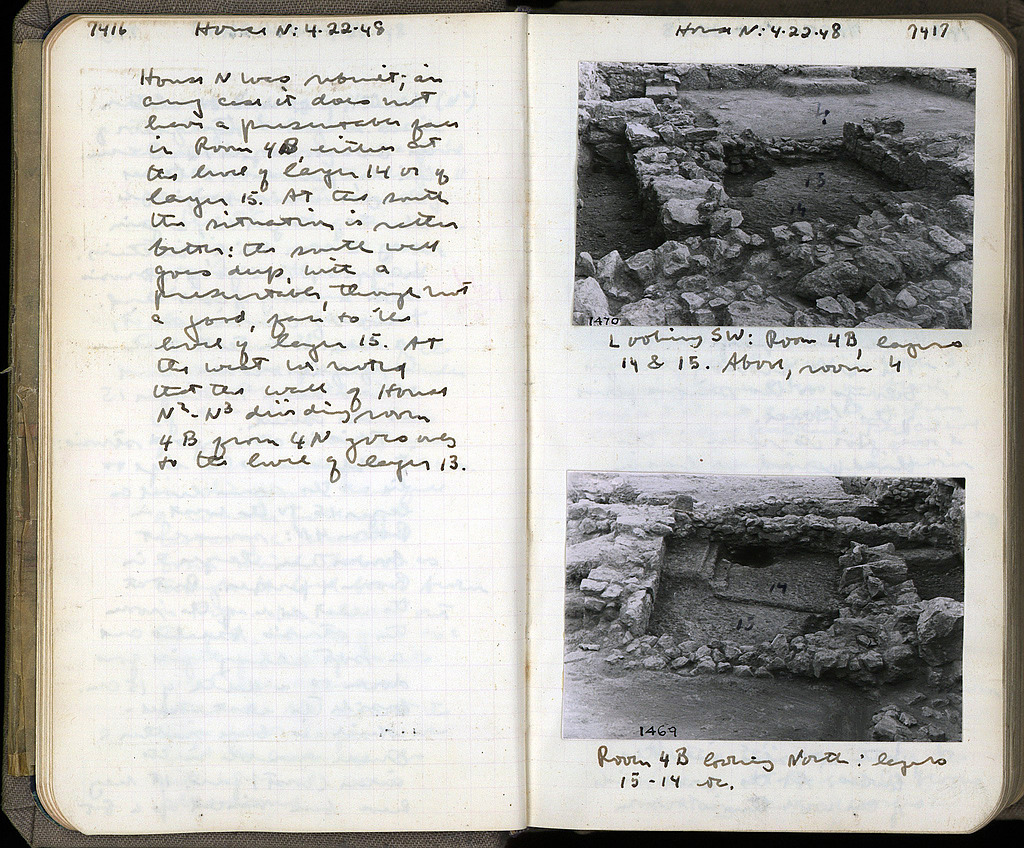 7416 House N: 4.22.48
House N was rebuilt; in
any case it does not
have a presentable face
in Room 4B, either at
the level of layer 14 or of
layer 15. At the south
the situation is rather
better: the south wall
goes deep, with a
presentable, though not
a good, face to the
level of layer 15. At
the west we noted
that the wall of House
N²-N³ dividing room
4B from 4N goes only
to the level of layer 13.
House N: 4.22.48 7417
4
13
14
1470
Looking SW: Room 4B, layers
14 & 15. Above, room 4
14
15
1469
Room 4B looking North: layers
15-14 etc.